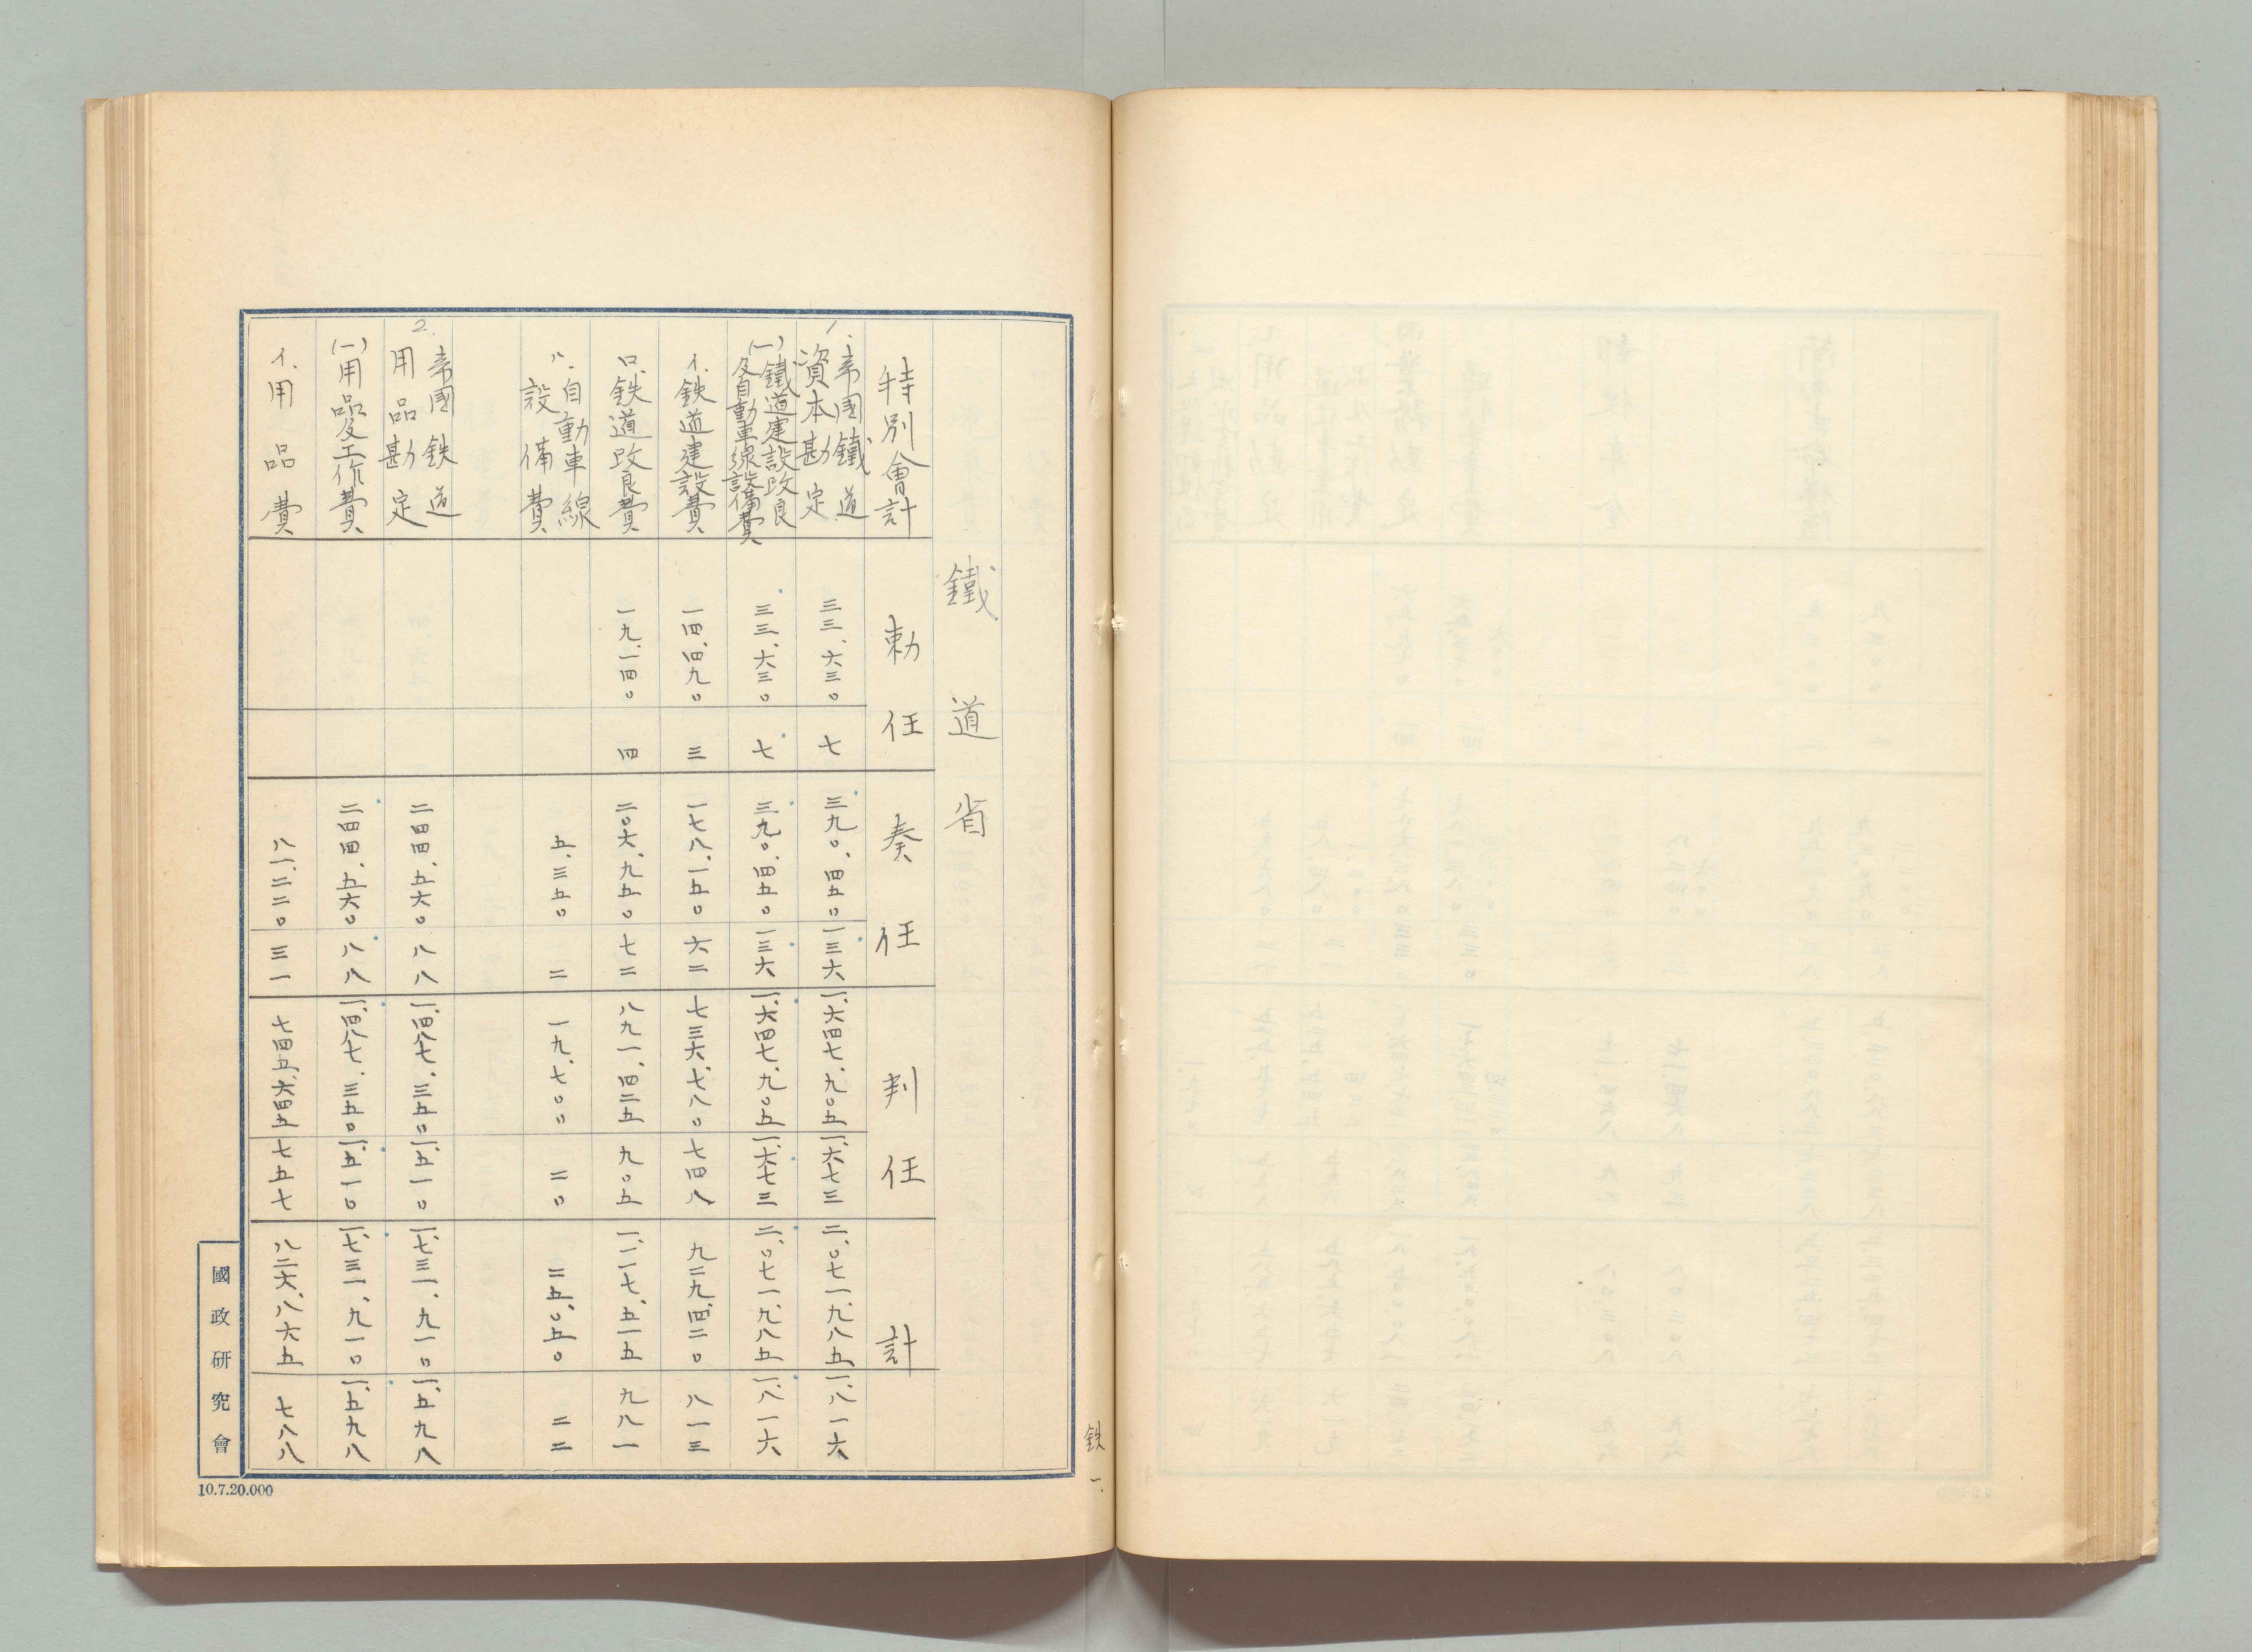 鐵道省
特別會計 勅任 奏任 判任 計
1. 帝國鐵道
資本勘定 三三、六三〇 七 三九〇、四五〇 一三六 一、六四七、九〇五 一、六七三 二、〇七一、九八五 一、八一六
(一)鐵道建設改良
及自動車線設備費 三三、六三〇 七 三九〇、四五〇 一三六 一、六四七、九〇五 一、六七三 二、〇七一、九八五 一、八一六
イ.鉄道建設費 一四、四九〇 三 一七八、一五〇 六二 七三六、七八〇 七四八 九二九、四二〇 八一三
ロ.鉄道改良費 一九、一四〇 四 二〇六、九五〇 七二 八九一、四二五 九〇五 一、一一七、五一五 九八一
ハ.自動車線
設備費 五、三五〇 二 一九、七〇〇 二〇 二五、〇五〇 二二
2. 帝國鉄道
用品勘定 二四四、五六〇 八八 一、四八七、三五〇 一、五一〇 一、七三一、九一〇 一、五九八
(一)用品及工作費 二四四、五六〇 八八 一、四八七、三五〇 一、五一〇 一、七三一、九一〇 一、五九八
イ.用品費 八一、二二〇 三一 七四五、六四五 七五七 八二六、八六五 七八八
鉄 一.
國政研究會
10.7.20.000